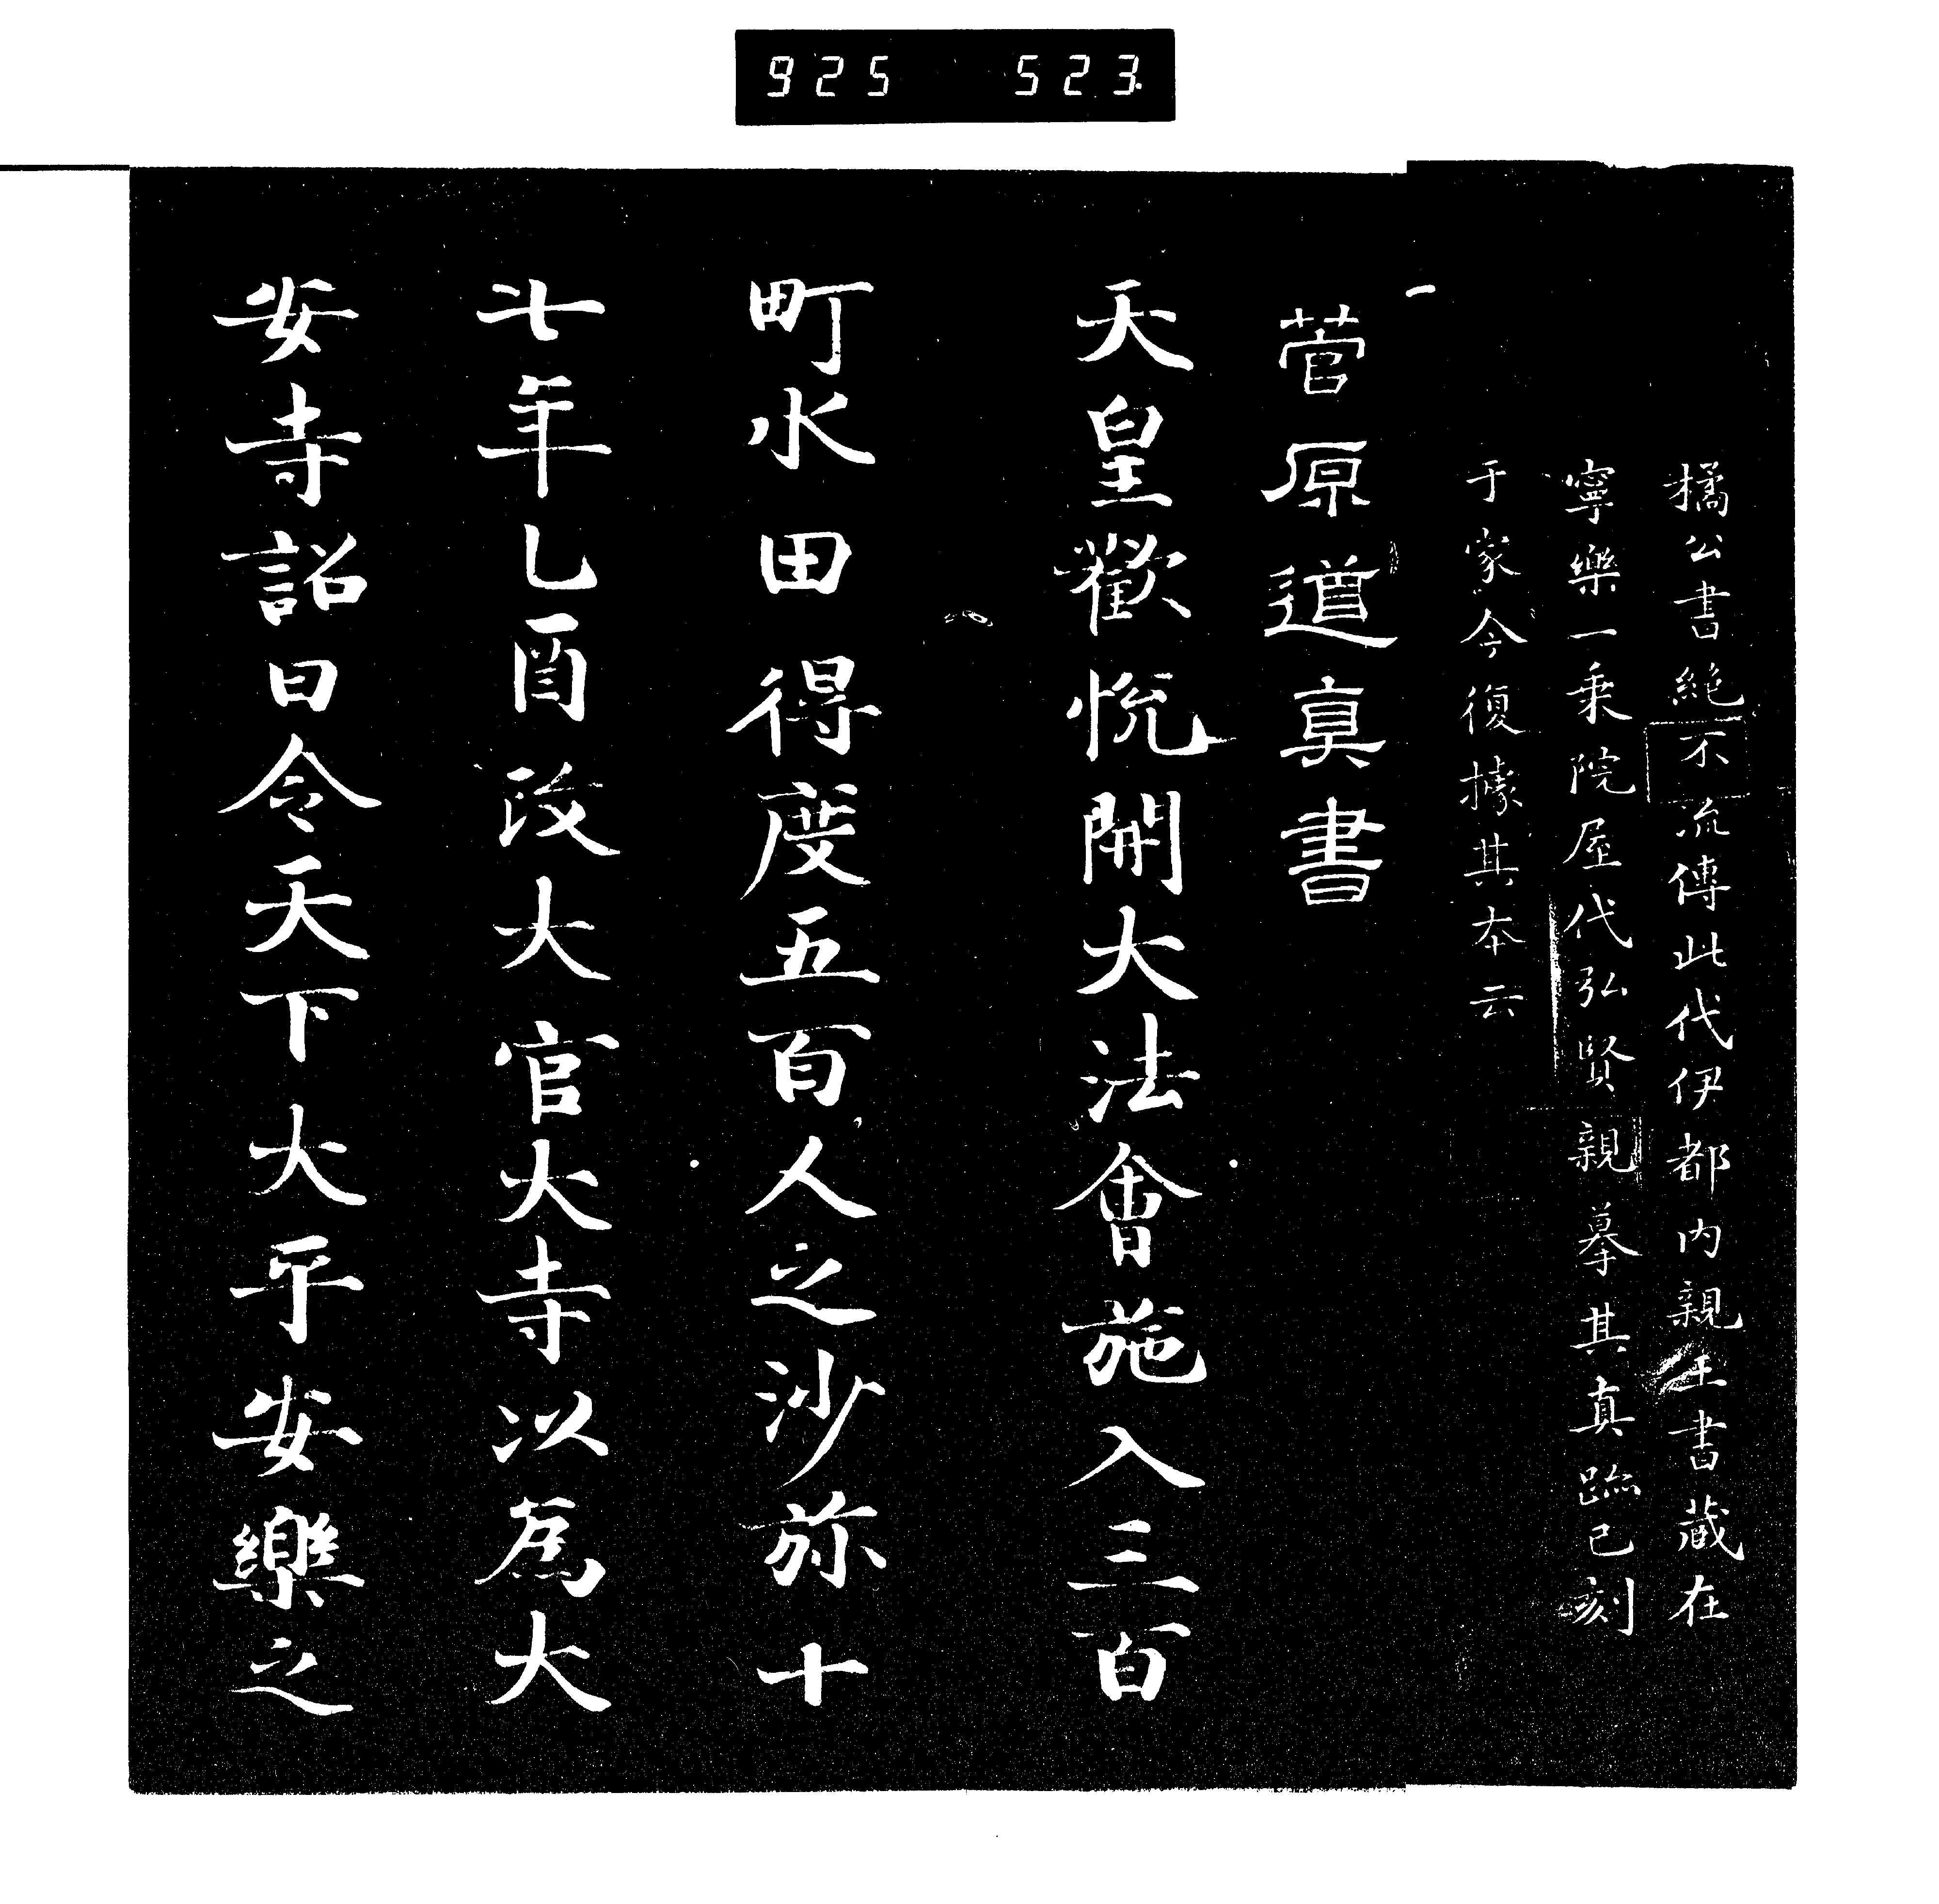 925 523
橘公書絶不流傳此代伊都内親王書蔵在
寧樂一乗院屋代弘賢親摹其真跡已刻
于家今復據其本云
菅原道真書
天皇歡悦開大法會施入三百
町水田得度五百人之沙弥十
七年乙酉改大官大寺以爲大
安寺詔曰令天下大平安樂之